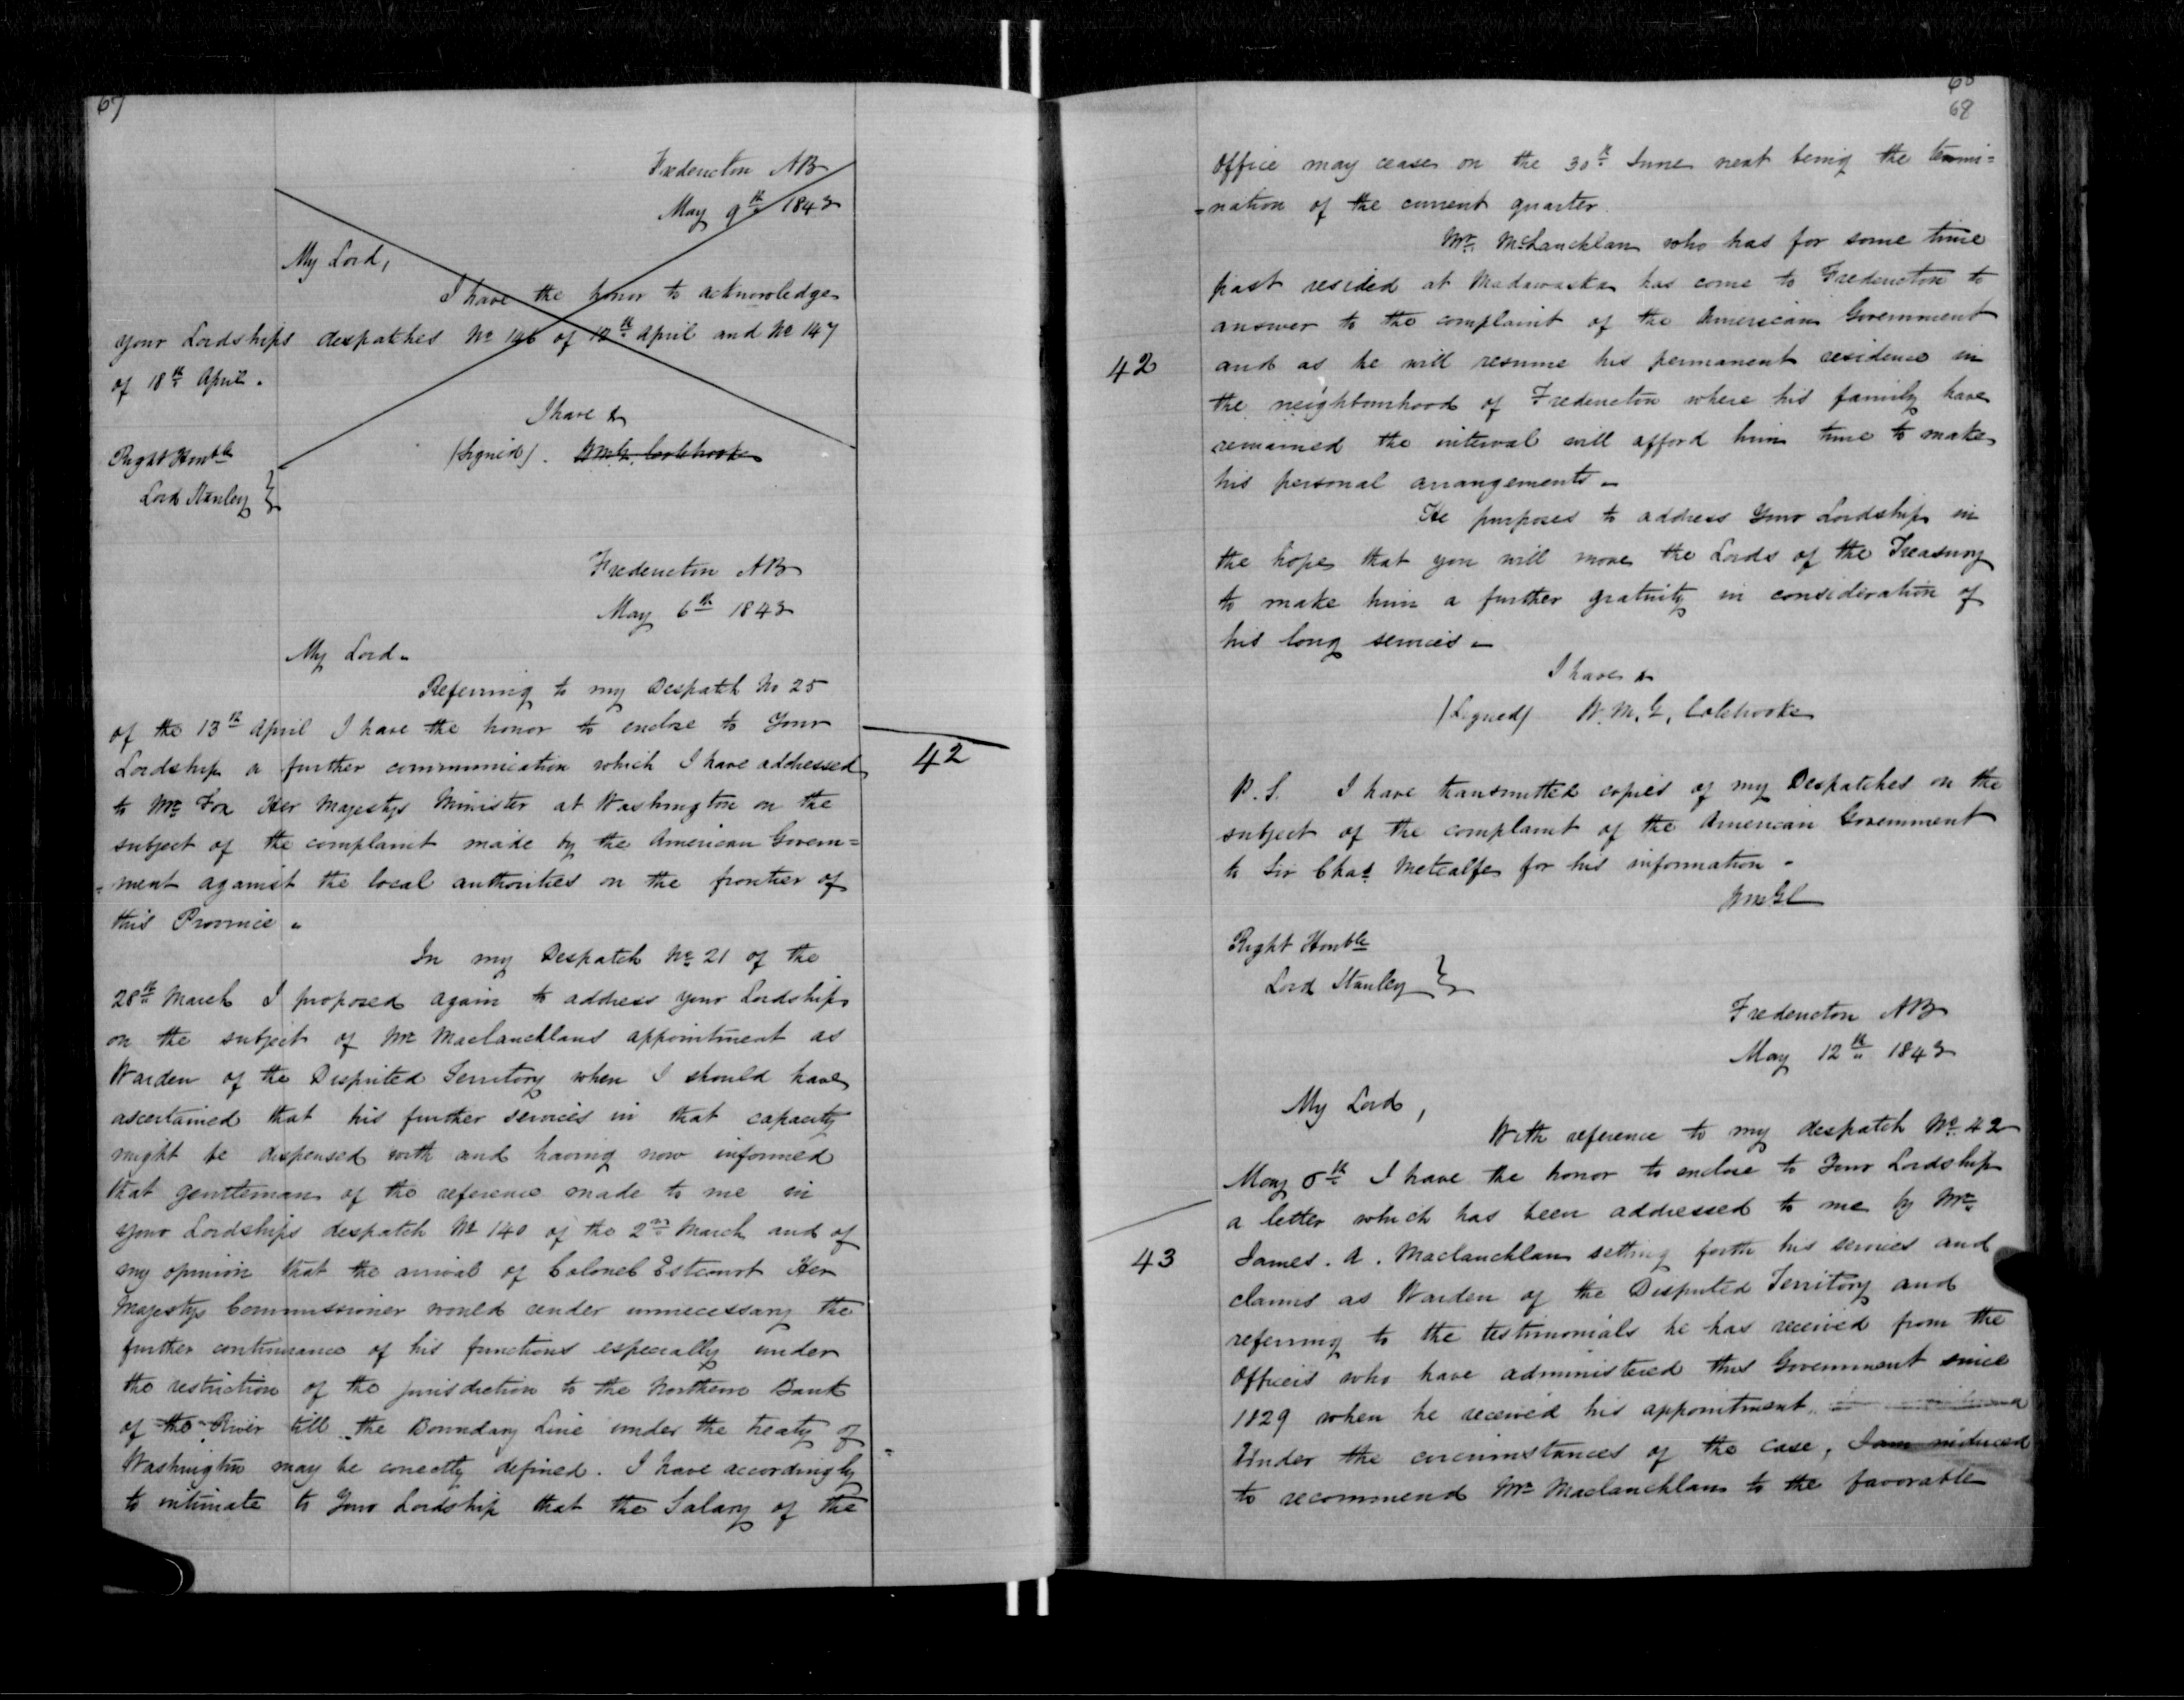 67
Fredericton NB
May 9th 1843
My Lord,
I have the honor to acknowledge
your Lordships despatches No 146 of 12th April and No 147
of 18th April.
I have &
(Signed). W.M.G. Colebrooke
Right Honble
Lord Stanley }
Fredericton NB
May 6th 1843
My Lord-
Referring to my Despatch No 25
of the 13th April I have the honor to enclose to Your
Lordship a further communication which I have addressed
42
to Mr Fox Her Majestys Minister at Washington on the
subject of the complaint made by the American Govern=
=ment against the local authorities on the frontier of
this Province -
In my Despatch No 21 of the
28th March I proposed again to address your Lordship
on the subject of Mr Maclauchlans appointment as
Warden of the Disputed Territory when I should have
ascertained that his further services in that capacity
might be dispensed with and having now informed
that gentleman of the reference made to me in
your Lordships despatch No 140 of the 2nd March and of
my opinion that the arrival of Colonel Estcourt Her
Majestys Commissioner would render unnecessary the
further continuance of his functions especially under
the restriction of the jurisdiction to the Northern Bank
of the River till the Boundary Line under the treaty of
Washington may be correctly defined. I have accordingly
to intimate to Your Lordship that the Salary of the
68
68
office may cease on the 30th June next being the termi=
=nation of the current quarter
Mr. McLauchlan who has for some time
past resided at Madawaska has come to Fredericton to
answer to the complaint of the American Government
42
and as he will resume his permanent residence in
the neighbourhood of Fredericton where his family have
remained the interval will afford him time to make
his personal arrangements -
He purposes to address Your Lordship in
the hope that you will move the Lords of the Treasury
to make him a further gratuity in consideration of
his long services -
I have &
(Signed) W.M.G. Colebrooke
P.S. I have transmitted copies of my Despatches on the
subject of the complaint of the American Government
to Sir Chas Metcalfe for his information -
WMGC
Right Honble
Lord Stanley }
Fredericton NB
May 12th 1843
My Lord,
With reference to my despatch No 42
May 6th I have the honor to enclose to Your Lordship
a letter which has been addressed to me by Mr
43
James. A. Maclauchlan setting forth his services and
claims as Warden of the Disputed Territory and
referring to the testimonials he has received from the
Officers who have administered this Government since
1829 when he received his appointment
Under the circumstances of the case, I am induced
to recommend Mr Maclauchlan to the favorable